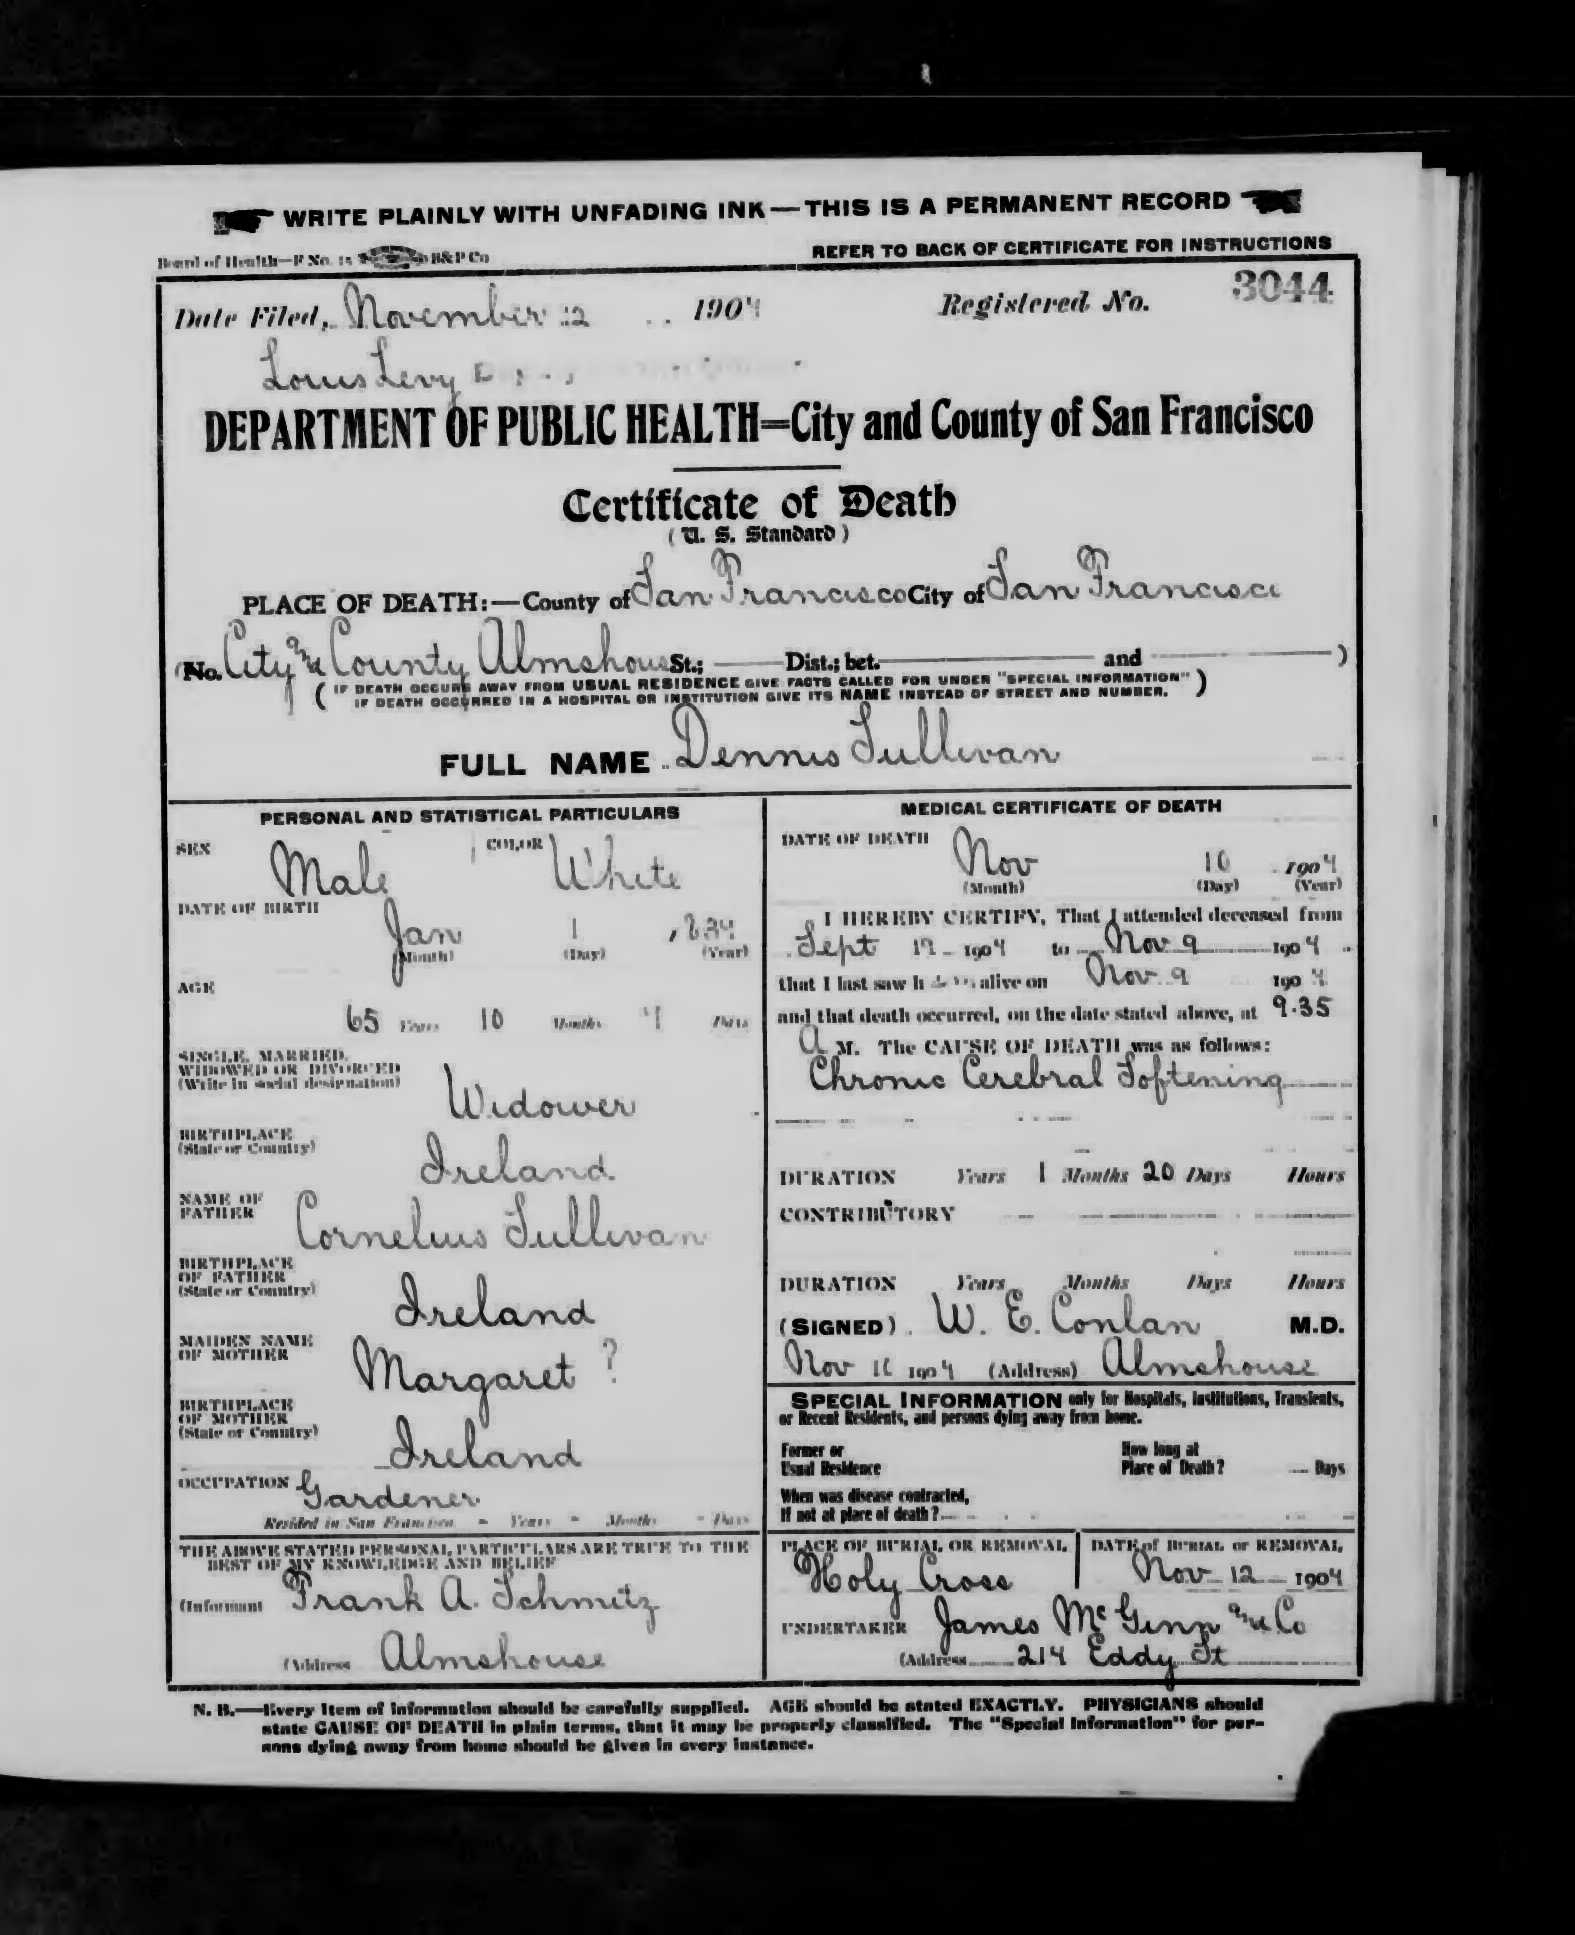 WRITE PLAINLY WITH UNFADING INK—THIS IS A PERMANENT RECORD
Board of Health—F No. 15 B&P Co
REFER TO BACK OF CERTIFICATE FOR INSTRUCTIONS
Date Filed, November 12 1904 Registered No. 3044
Louis Levy
DEPARTMENT OF PUBLIC HEALTH=City and County of San Francisco
Certificate of Death
(U. S. Standard)
PLACE OF DEATH:—County of San Francisco City of San Francisco
(No. City and County Almshouse St.; Dist.; bet. and )
( IF DEATH OCCURS AWAY FROM USUAL RESIDENCE GIVE FACTS CALLED FOR UNDER "SPECIAL INFORMATION" )
IF DEATH OCCURRED IN A HOSPITAL OR INSTITUTION GIVE ITS NAME INSTEAD OF STREET AND NUMBER.
FULL NAME Dennis Sullivan
PERSONAL AND STATISTICAL PARTICULARS
SEX Male COLOR White
DATE OF BIRTH
Jan 1 , 834
(Month) (Day) (Year)
AGE
65 Years 10 Months Days
SINGLE, MARRIED,
WIDOWED OR DIVORCED
(Write in social designation)
Widower
BIRTHPLACE
(State or Country)
Ireland
NAME OF
FATHER
Cornelius Sullivan
BIRTHPLACE
OF FATHER
(State or Country)
Ireland
MAIDEN NAME
OF MOTHER
Margaret ?
BIRTHPLACE
OF MOTHER
(State or Country)
Ireland
OCCUPATION Gardener
Resided in San Francisco - Years - Months - Days
THE ABOVE STATED PERSONAL PARTICULARS ARE TRUE TO THE
BEST OF MY KNOWLEDGE AND BELIEF
(Informant Frank A. Schmitz
(Address Almshouse
MEDICAL CERTIFICATE OF DEATH
DATE OF DEATH
Nov 10 1904
(Month) (Day) (Year)
I HEREBY CERTIFY, That I attended deceased from
Sept 19 1904 to Nov 9 1904
that I last saw h alive on Nov 9 1904
and that death occurred, on the date stated above, at 9.35
A M. The CAUSE OF DEATH was as follows:
Chronic Cerebral Softening
DURATION Years 1 Months 20 Days Hours
CONTRIBUTORY
DURATION Years Months Days Hours
(SIGNED) W. E. Conlan M.D.
Nov 1904 (Address) Almshouse
SPECIAL INFORMATION only for Hospitals, Institutions, Transients,
or Recent Residents, and persons dying away from home.
Former or
Usual Residence
How long at
Place of Death? Days
When was disease contracted,
If not at place of death?
PLACE OF BURIAL OR REMOVAL
Holy Cross
DATE of BURIAL or REMOVAL
Nov 12 1904
UNDERTAKER James McGinn and Co
(Address 214 Eddy St
N. B.—Every item of information should be carefully supplied. AGE should be stated EXACTLY. PHYSICIANS should
state CAUSE OF DEATH in plain terms, that it may be properly classified. The "Special Information" for per-
sons dying away from home should be given in every instance.